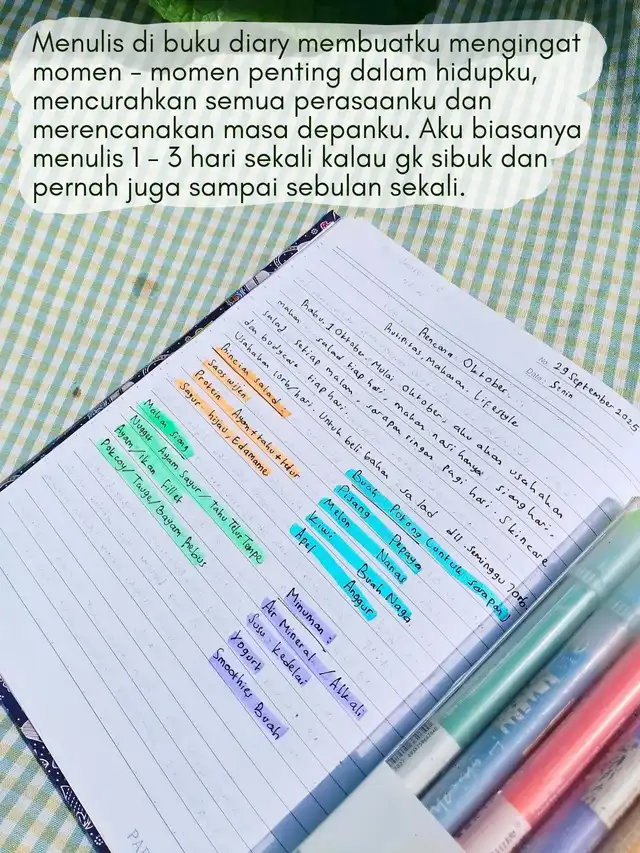 Menulis di buku diary membuatku mengingat
momen - momen penting dalam hidupku,
mencurahkan semua perasaanku dan
merencanakan masa depanku. Aku biasanya
menulis 1 - 3 hari sekali kalau gk sibuk dan
pernah juga sampai sebulan sekali.
No. 29 September 2025
Date: Senin
Rencana Oktober
Rutinitas, Makanan, Lifestyle
Rabu, 1 Oktober. Mulai Oktober, aku akan usahakan
makan salad tiap hari, makan nasi hanya siang hari.
salad setiap malam. sarapan ringan pagi hari. Skincare
dan bodycare tiap hari.
Usahakan 10rb/hari. Untuk beli bahan salad dll seminggu 70rb.
salad:
Saos wijen
Protein Ayam + tahu + telur
Sayur hijau, Edamame
Makan siang
Nugget Ayam Sayur / tahu Telur Tempe
Ayam / Ikan Fillet
Pokcoy / Tauge / Bayam Rebus
Buah Potong (untuk sarapan)
Pisang Pepaya
Melon Nanas
Kiwi Buah Naga
Apel Anggur
Minuman:
Air Mineral / Alkali
Susu kedelai
Yogurt
Smoothies Buah